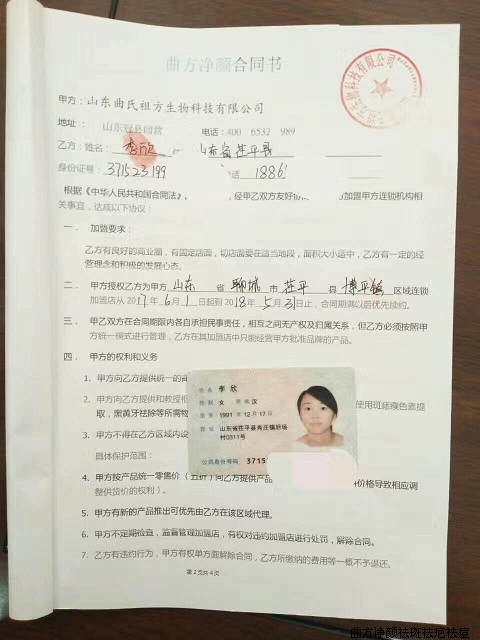 曲方净颜合同书
甲方：山东曲氏祖方生物科技有限公司
地址：山东冠县国营 电话：400 6532 989
乙方：姓名：李欣 山东省茌平县
身份证号：371523199 话 1886
根据《中华人民共和国合同法》、 经甲乙双方友好 加盟甲方连锁机构相
关事宜，达成以下协议：
一、 加盟要求：
乙方有良好的商业圈，有固定店面，切店面要在适当地段，面积大小适中，乙方有一定的经
营理念和积极的发展心态。
二、甲方授权乙方为甲方 山东 省 聊城 市 茌平 县 博平镇 区域连锁
加盟店从 2017年 6月 1日起到 2018年 5月 31日止，合同期满以后优先续约。
三、甲乙双方在合同期限内各自承担民事责任，相互之间无产权及归属关系，但乙方必须按照甲
方统一模式进行管理，乙方在其加盟店中只能经营甲方批准品牌的产品。
四、 甲方的权利和义务
1、甲方向乙方提供统一的
2、甲方向乙方提供和教授 使用斑痣瘊色素提
取，黑黄牙祛除等所需
3、甲方不得在乙方区域内设
具体保护范围：
4、甲方按产品统一零售价（五折）向乙方提供产品 价格导致相应调
整供货价的权利）。
5、甲方有新的产品推出可优先由乙方在该区域代理。
6、甲方不定期检查，监督管理加盟店，有权对违约加盟店进行处罚，解除合同。
7、乙方有违约行为，甲方有权单方面解除合同，乙方所缴纳的费用等一概不予退还。
第2页共4页
姓名 李欣
性别 女 民族 汉
出生 1991年12月17日
住址 山东省茌平县肖庄镇后场
村0311号
公民身份号码 3715
曲方净颜祛斑祛疤祛痘